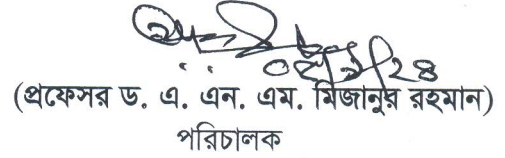 (প্রফেসর ড. এ. এন. এম. মিজানুর রহমান)
পরিচালক